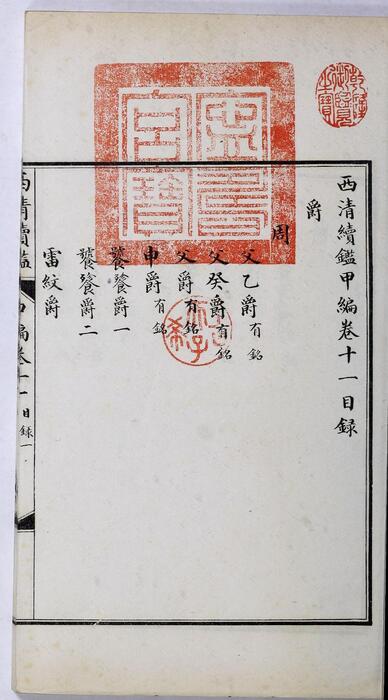 西清續鑑甲編卷十一目録
爵
周
父乙爵有銘
父癸爵有銘
父爵有銘
申爵有銘
饕餮爵一
饕餮爵二
雷紋爵
西清續鑑 甲編卷十一目録一